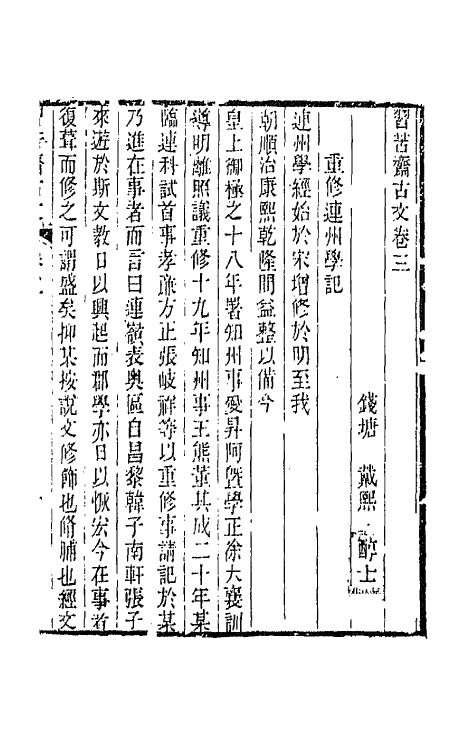 習苦齋古文卷三
錢塘 戴熙 醇士
重修連州學記
連州學經始於宋增修於明至我
朝順治康熙乾隆間益整以備今
皇上御極之十八年署知州事愛昇阿曁學正徐大襄訓
導明離照議重修十九年知州事王熊董其成二十年某
臨連科試首事孝廉方正張岐祥等以重修事請記於某
乃進在事者而言曰連嶺表奧區自昌黎韓子南軒張子
來遊於斯文敎日以興起而郡學亦日以恢宏今在事者
復葺而修之可謂盛矣抑某按說文修飾也脩脯也經文